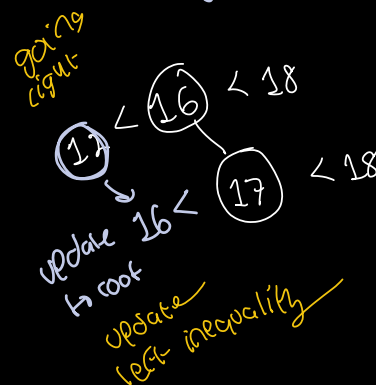 going
right
12 < 16 < 18
16 < 17 < 18
update
to root
update
left inequality